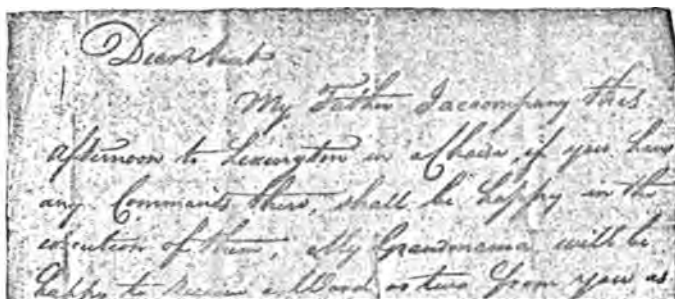 Dear Aunt
My Father I accompany this
afternoon to Lexington in a Chaise, if you have
any Commands there, shall be happy in the
execution of them, My Grandmama will be
happy to receive a Word or two from you as